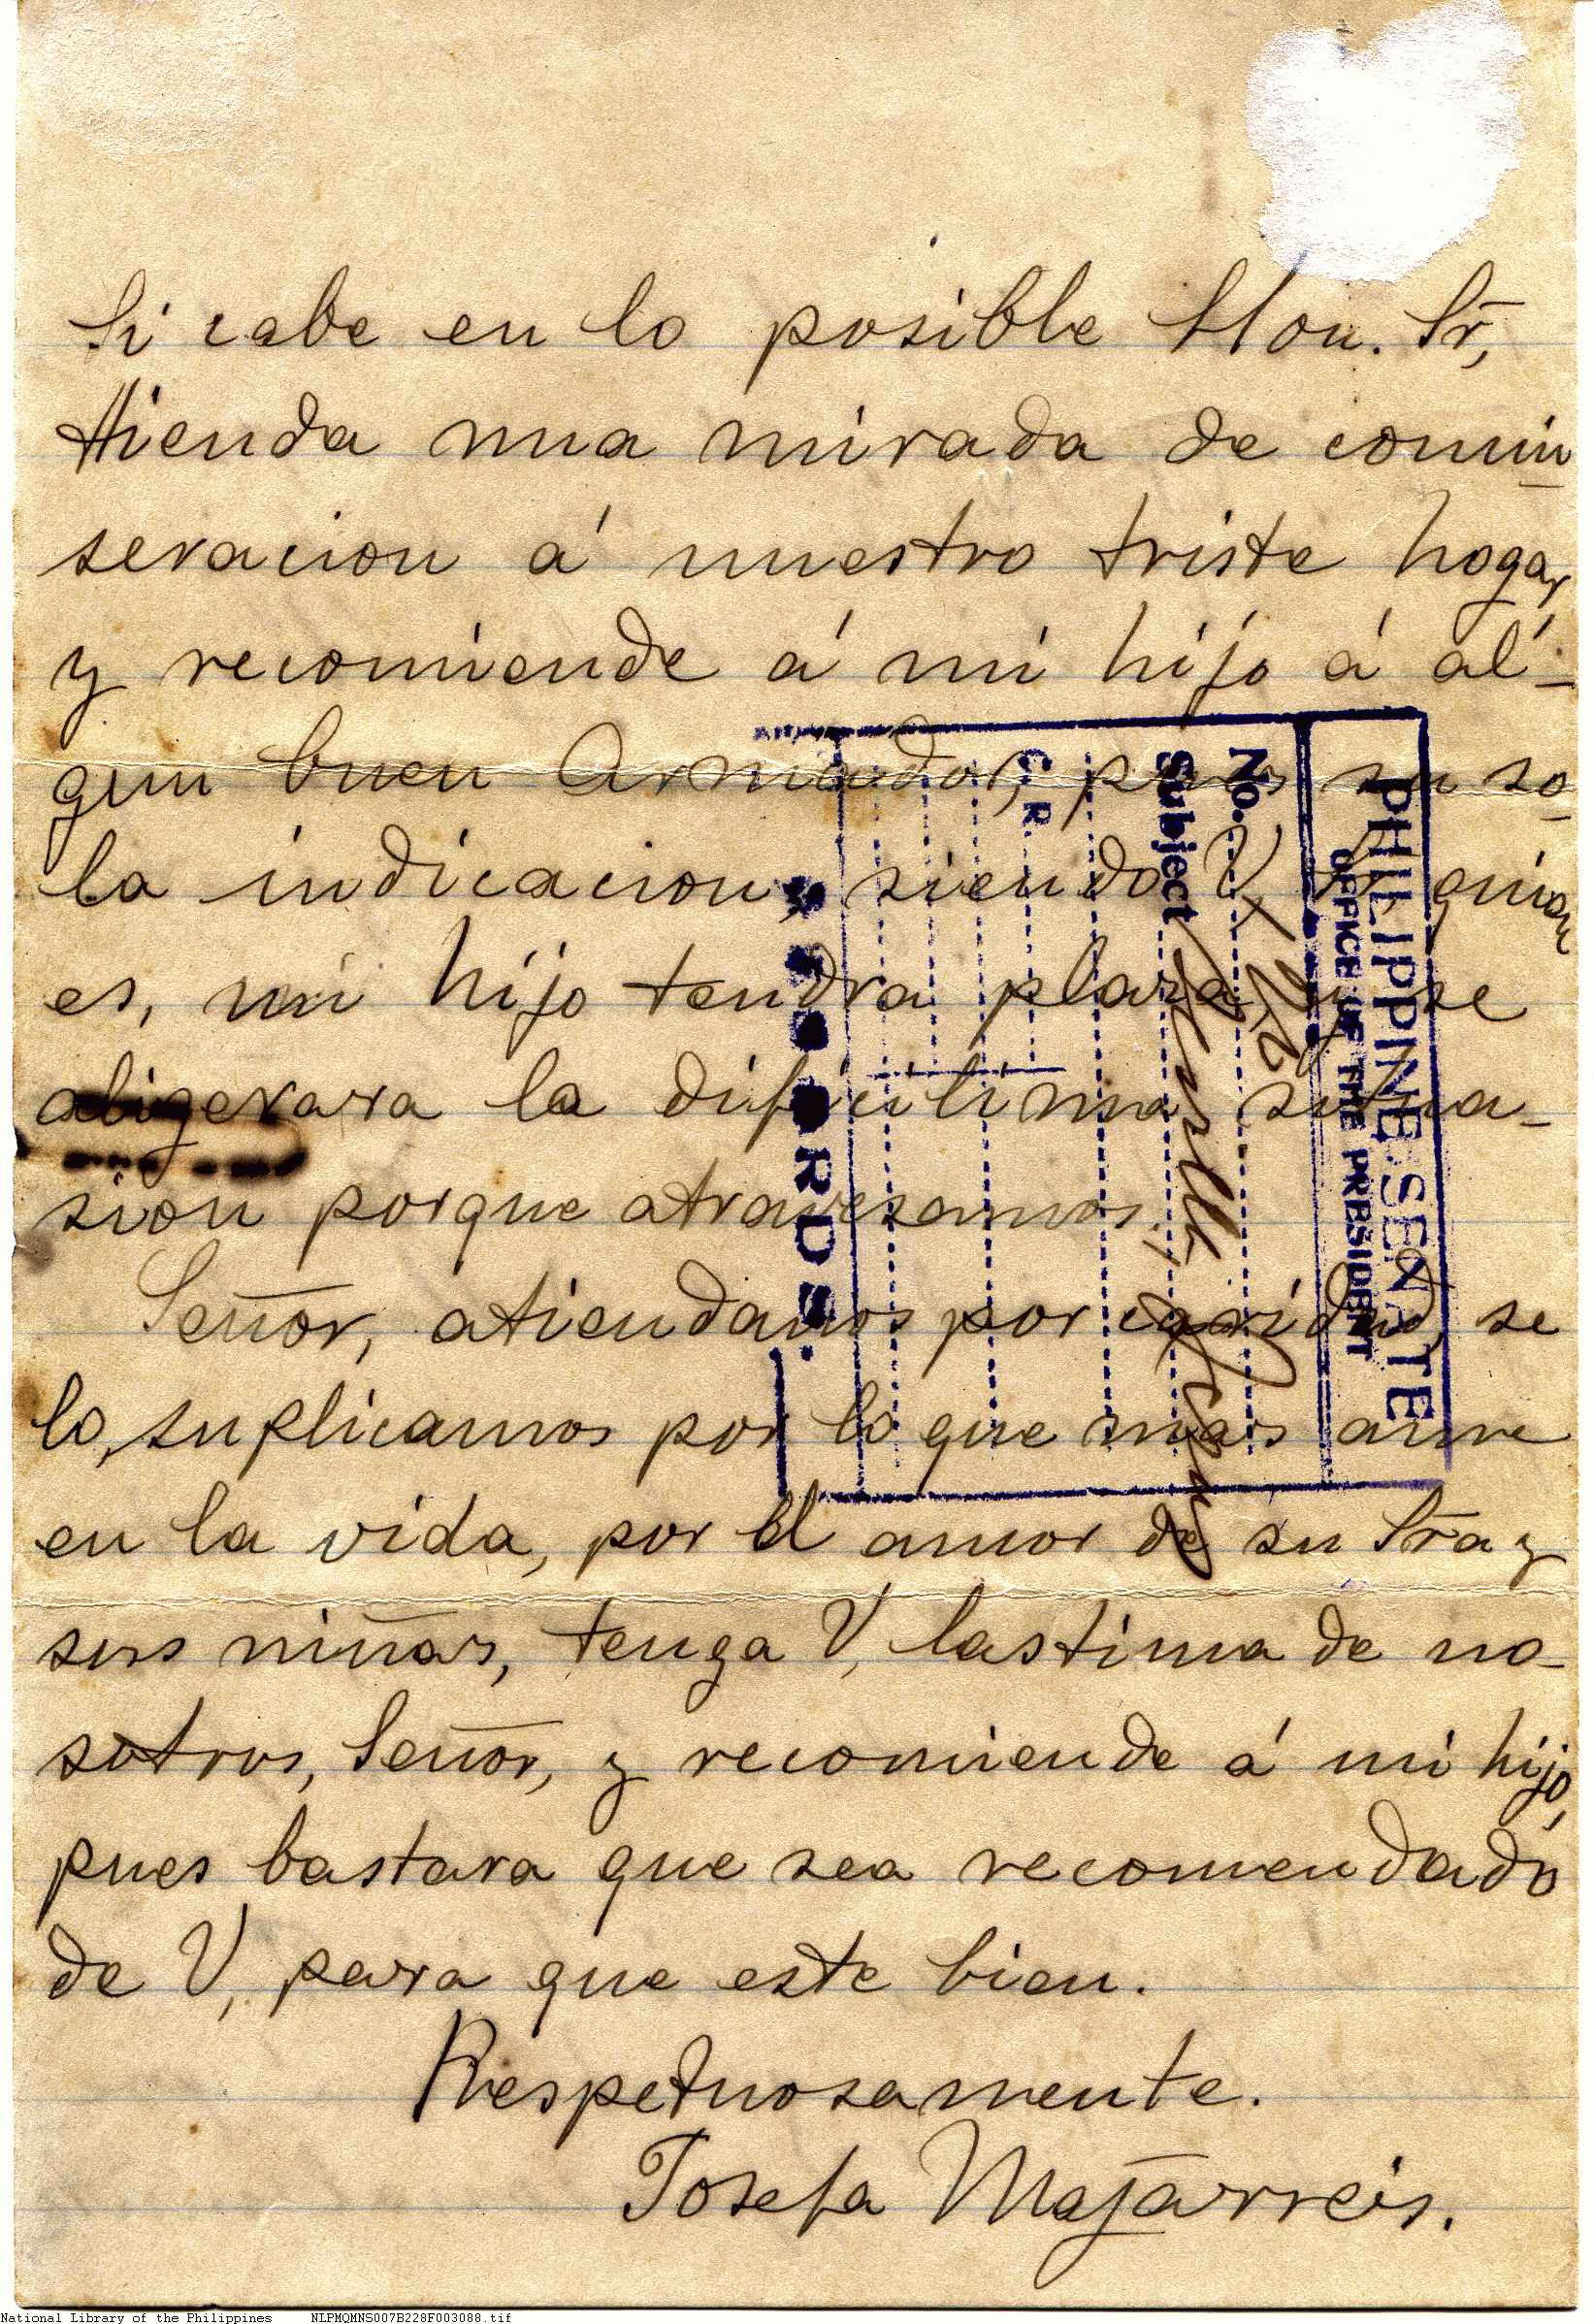 Si cabe en lo posible Hon. Sr,
tienda una mirada de comin
seracion á nuestro triste hogar,
y recomiende á mi hijo á al-
gun buen Armador, pues su so-
la indicacion, siendo V, quien
es, mi hijo tendra plaza y se
aligerara la dificilima situa-
sion porque atravesamos.
Señor, atiendanos por caridad, se
lo suplicamos por lo que mas ame
en la vida, por el amor de su Sra y
sus niños, tenga V, lastima de no-
sotros, Señor, y recomiende á mi hijo,
pues bastara que sea recomendado
de V, para que este bien.
Respetuosamente.
Josefa Majarreis.
PHILIPPINE SENATE
OFFICE OF THE PRESIDENT
No.
Subject
C. R.
RECORDS.
National Library of the Philippines NLPMQMNS007B228F003088.tif